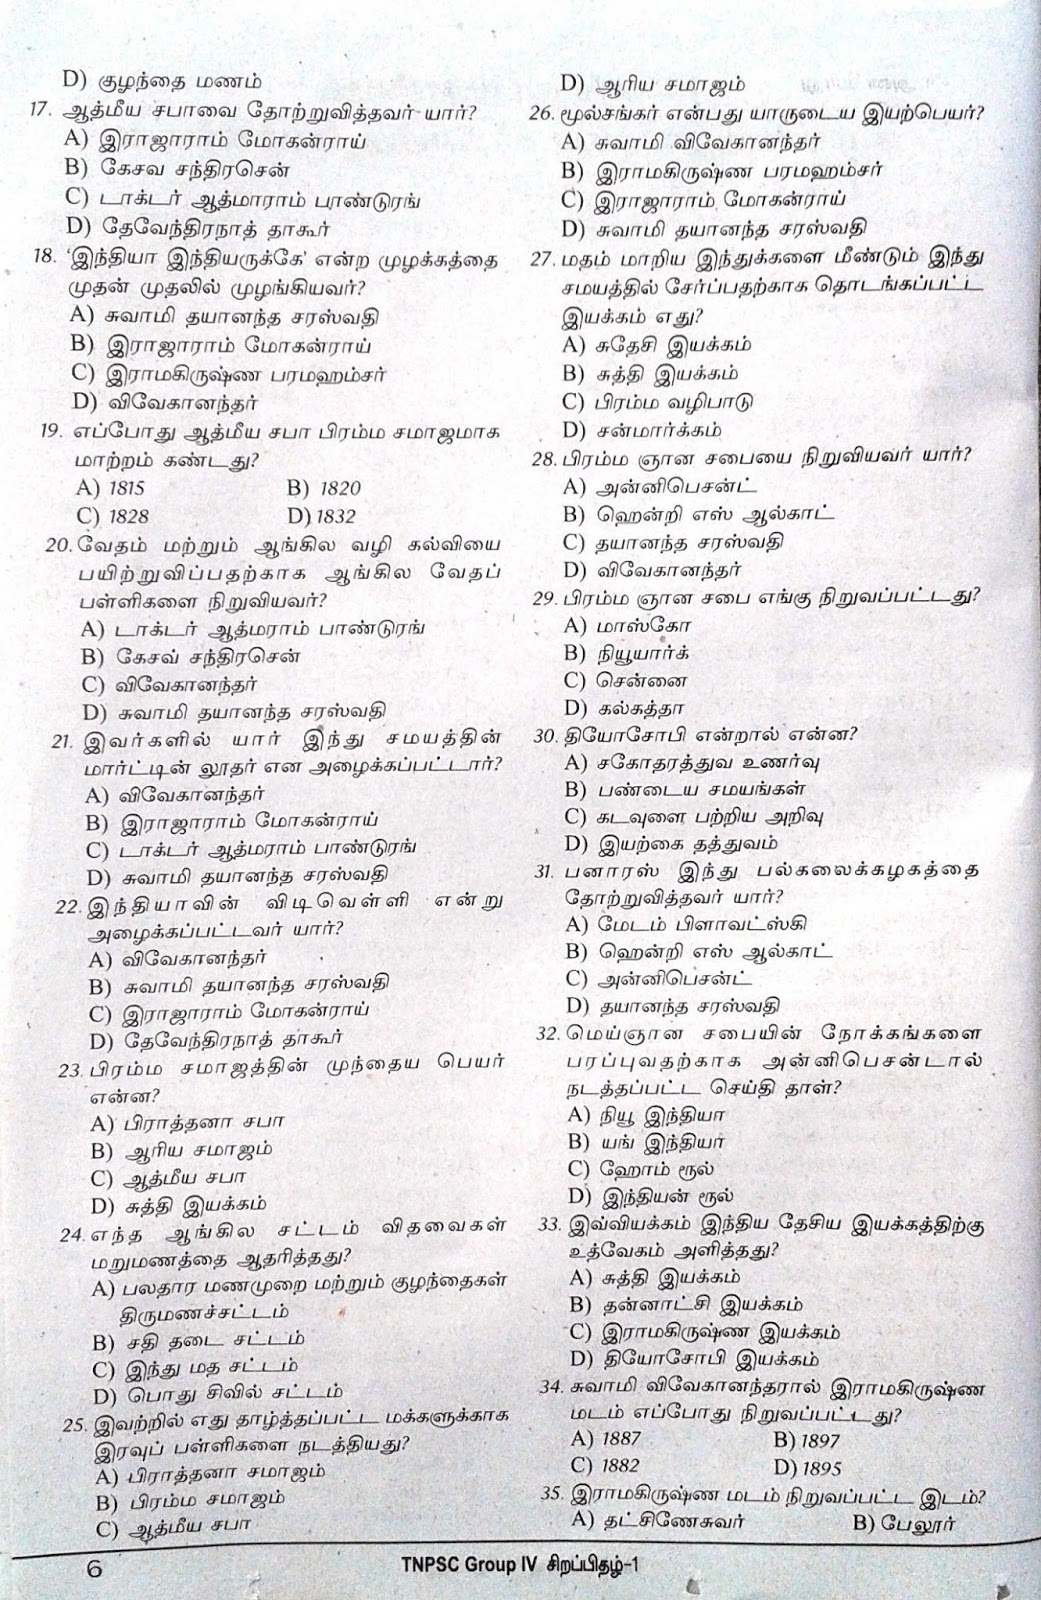 D) குழந்தை மணம்
17. ஆத்மீய சபாவை தோற்றுவித்தவர் யார்?
A) இராஜாராம் மோகன்ராய்
B) கேசவ சந்திரசென்
C) டாக்டர் ஆத்மாராம் பாண்டுரங்
D) தேவேந்திரநாத் தாகூர்
18. ‘இந்தியா இந்தியருக்கே’ என்ற முழக்கத்தை
முதன் முதலில் முழங்கியவர்?
A) சுவாமி தயானந்த சரஸ்வதி
B) இராஜாராம் மோகன்ராய்
C) இராமகிருஷ்ண பரமஹம்சர்
D) விவேகானந்தர்
19. எப்போது ஆத்மீய சபா பிரம்ம சமாஜமாக
மாற்றம் கண்டது?
A) 1815 B) 1820
C) 1828 D) 1832
20. வேதம் மற்றும் ஆங்கில வழி கல்வியை
பயிற்றுவிப்பதற்காக ஆங்கில வேதப்
பள்ளிகளை நிறுவியவர்?
A) டாக்டர் ஆத்மராம் பாண்டுரங்
B) கேசவ் சந்திரசென்
C) விவேகானந்தர்
D) சுவாமி தயானந்த சரஸ்வதி
21. இவர்களில் யார் இந்து சமயத்தின்
மார்ட்டின் லூதர் என அழைக்கப்பட்டார்?
A) விவேகானந்தர்
B) இராஜாராம் மோகன்ராய்
C) டாக்டர் ஆத்மராம் பாண்டுரங்
D) சுவாமி தயானந்த சரஸ்வதி
22. இந்தியாவின் விடிவெள்ளி என்று
அழைக்கப்பட்டவர் யார்?
A) விவேகானந்தர்
B) சுவாமி தயானந்த சரஸ்வதி
C) இராஜாராம் மோகன்ராய்
D) தேவேந்திரநாத் தாகூர்
23. பிரம்ம சமாஜத்தின் முந்தைய பெயர்
என்ன?
A) பிராத்தனா சபா
B) ஆரிய சமாஜம்
C) ஆத்மீய சபா
D) சுத்தி இயக்கம்
24. எந்த ஆங்கில சட்டம் விதவைகள்
மறுமணத்தை ஆதரித்தது?
A) பலதார மணமுறை மற்றும் குழந்தைகள்
திருமணச்சட்டம்
B) சதி தடை சட்டம்
C) இந்து மத சட்டம்
D) பொது சிவில் சட்டம்
25. இவற்றில் எது தாழ்த்தப்பட்ட மக்களுக்காக
இரவுப் பள்ளிகளை நடத்தியது?
A) பிராத்தனா சமாஜம்
B) பிரம்ம சமாஜம்
C) ஆத்மீய சபா
D) ஆரிய சமாஜம்
26. மூல்சங்கர் என்பது யாருடைய இயற்பெயர்?
A) சுவாமி விவேகானந்தர்
B) இராமகிருஷ்ண பரமஹம்சர்
C) இராஜாராம் மோகன்ராய்
D) சுவாமி தயானந்த சரஸ்வதி
27. மதம் மாறிய இந்துக்களை மீண்டும் இந்து
சமயத்தில் சேர்ப்பதற்காக தொடங்கப்பட்ட
இயக்கம் எது?
A) சுதேசி இயக்கம்
B) சுத்தி இயக்கம்
C) பிரம்ம வழிபாடு
D) சன்மார்க்கம்
28. பிரம்ம ஞான சபையை நிறுவியவர் யார்?
A) அன்னிபெசன்ட்
B) ஹென்றி எஸ் ஆல்காட்
C) தயானந்த சரஸ்வதி
D) விவேகானந்தர்
29. பிரம்ம ஞான சபை எங்கு நிறுவப்பட்டது?
A) மாஸ்கோ
B) நியூயார்க்
C) சென்னை
D) கல்கத்தா
30. தியோசோபி என்றால் என்ன?
A) சகோதரத்துவ உணர்வு
B) பண்டைய சமயங்கள்
C) கடவுளை பற்றிய அறிவு
D) இயற்கை தத்துவம்
31. பனாரஸ் இந்து பல்கலைக்கழகத்தை
தோற்றுவித்தவர் யார்?
A) மேடம் பிளாவட்ஸ்கி
B) ஹென்றி எஸ் ஆல்காட்
C) அன்னிபெசன்ட்
D) தயானந்த சரஸ்வதி
32. மெய்ஞான சபையின் நோக்கங்களை
பரப்புவதற்காக அன்னிபெசன்டால்
நடத்தப்பட்ட செய்தி தாள்?
A) நியூ இந்தியா
B) யங் இந்தியர்
C) ஹோம் ரூல்
D) இந்தியன் ரூல்
33. இவ்வியக்கம் இந்திய தேசிய இயக்கத்திற்கு
உத்வேகம் அளித்தது?
A) சுத்தி இயக்கம்
B) தன்னாட்சி இயக்கம்
C) இராமகிருஷ்ண இயக்கம்
D) தியோசோபி இயக்கம்
34. சுவாமி விவேகானந்தரால் இராமகிருஷ்ண
மடம் எப்போது நிறுவப்பட்டது?
A) 1887 B) 1897
C) 1882 D) 1895
35. இராமகிருஷ்ண மடம் நிறுவப்பட்ட இடம்?
A) தட்சிணேசுவர் B) பேலூர்
6 TNPSC Group IV சிறப்பிதழ்-1